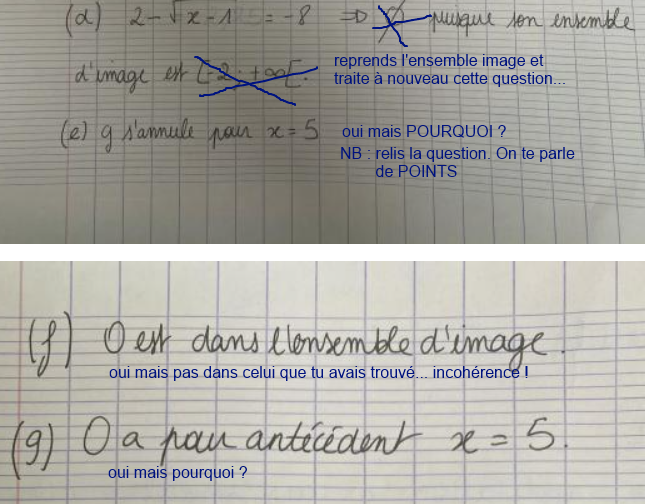 (d) 2 - √x - 1 = -8 ⇒ puisque son ensemble
d'image est [-2 ; +∞[.
reprends l'ensemble image et
traite à nouveau cette question...
(e) g s'annule pour x = 5
oui mais POURQUOI ?
NB : relis la question. On te parle
de POINTS
(f) 0 est dans l'ensemble d'image.
oui mais pas dans celui que tu avais trouvé... incohérence !
(g) 0 a pour antécédent x = 5.
oui mais pourquoi ?